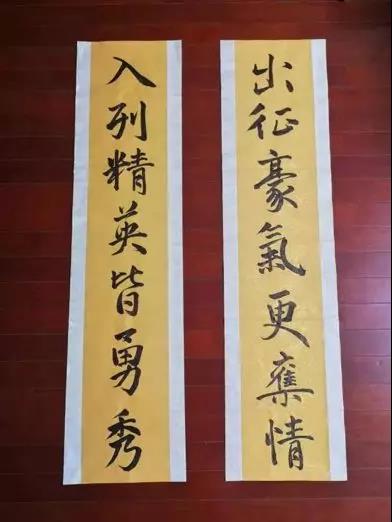 出征豪氣更情
入列精英皆勇秀